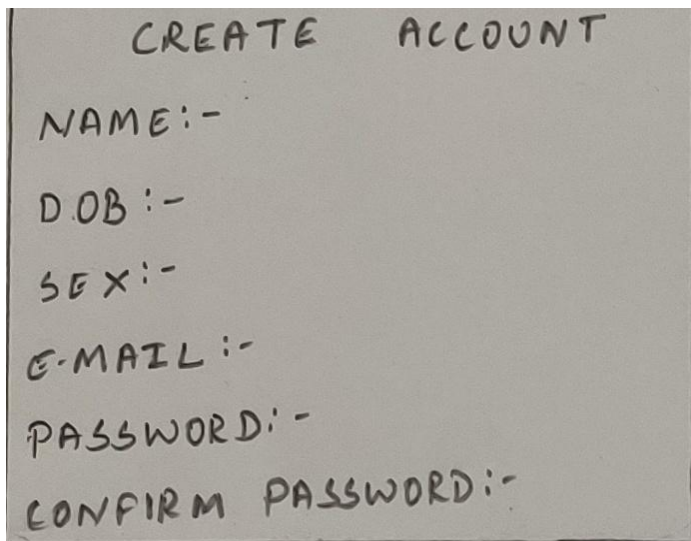 CREATE ACCOUNT
NAME:-
D.OB:-
SEX:-
E-MAIL:-
PASSWORD:-
CONFIRM PASSWORD:-